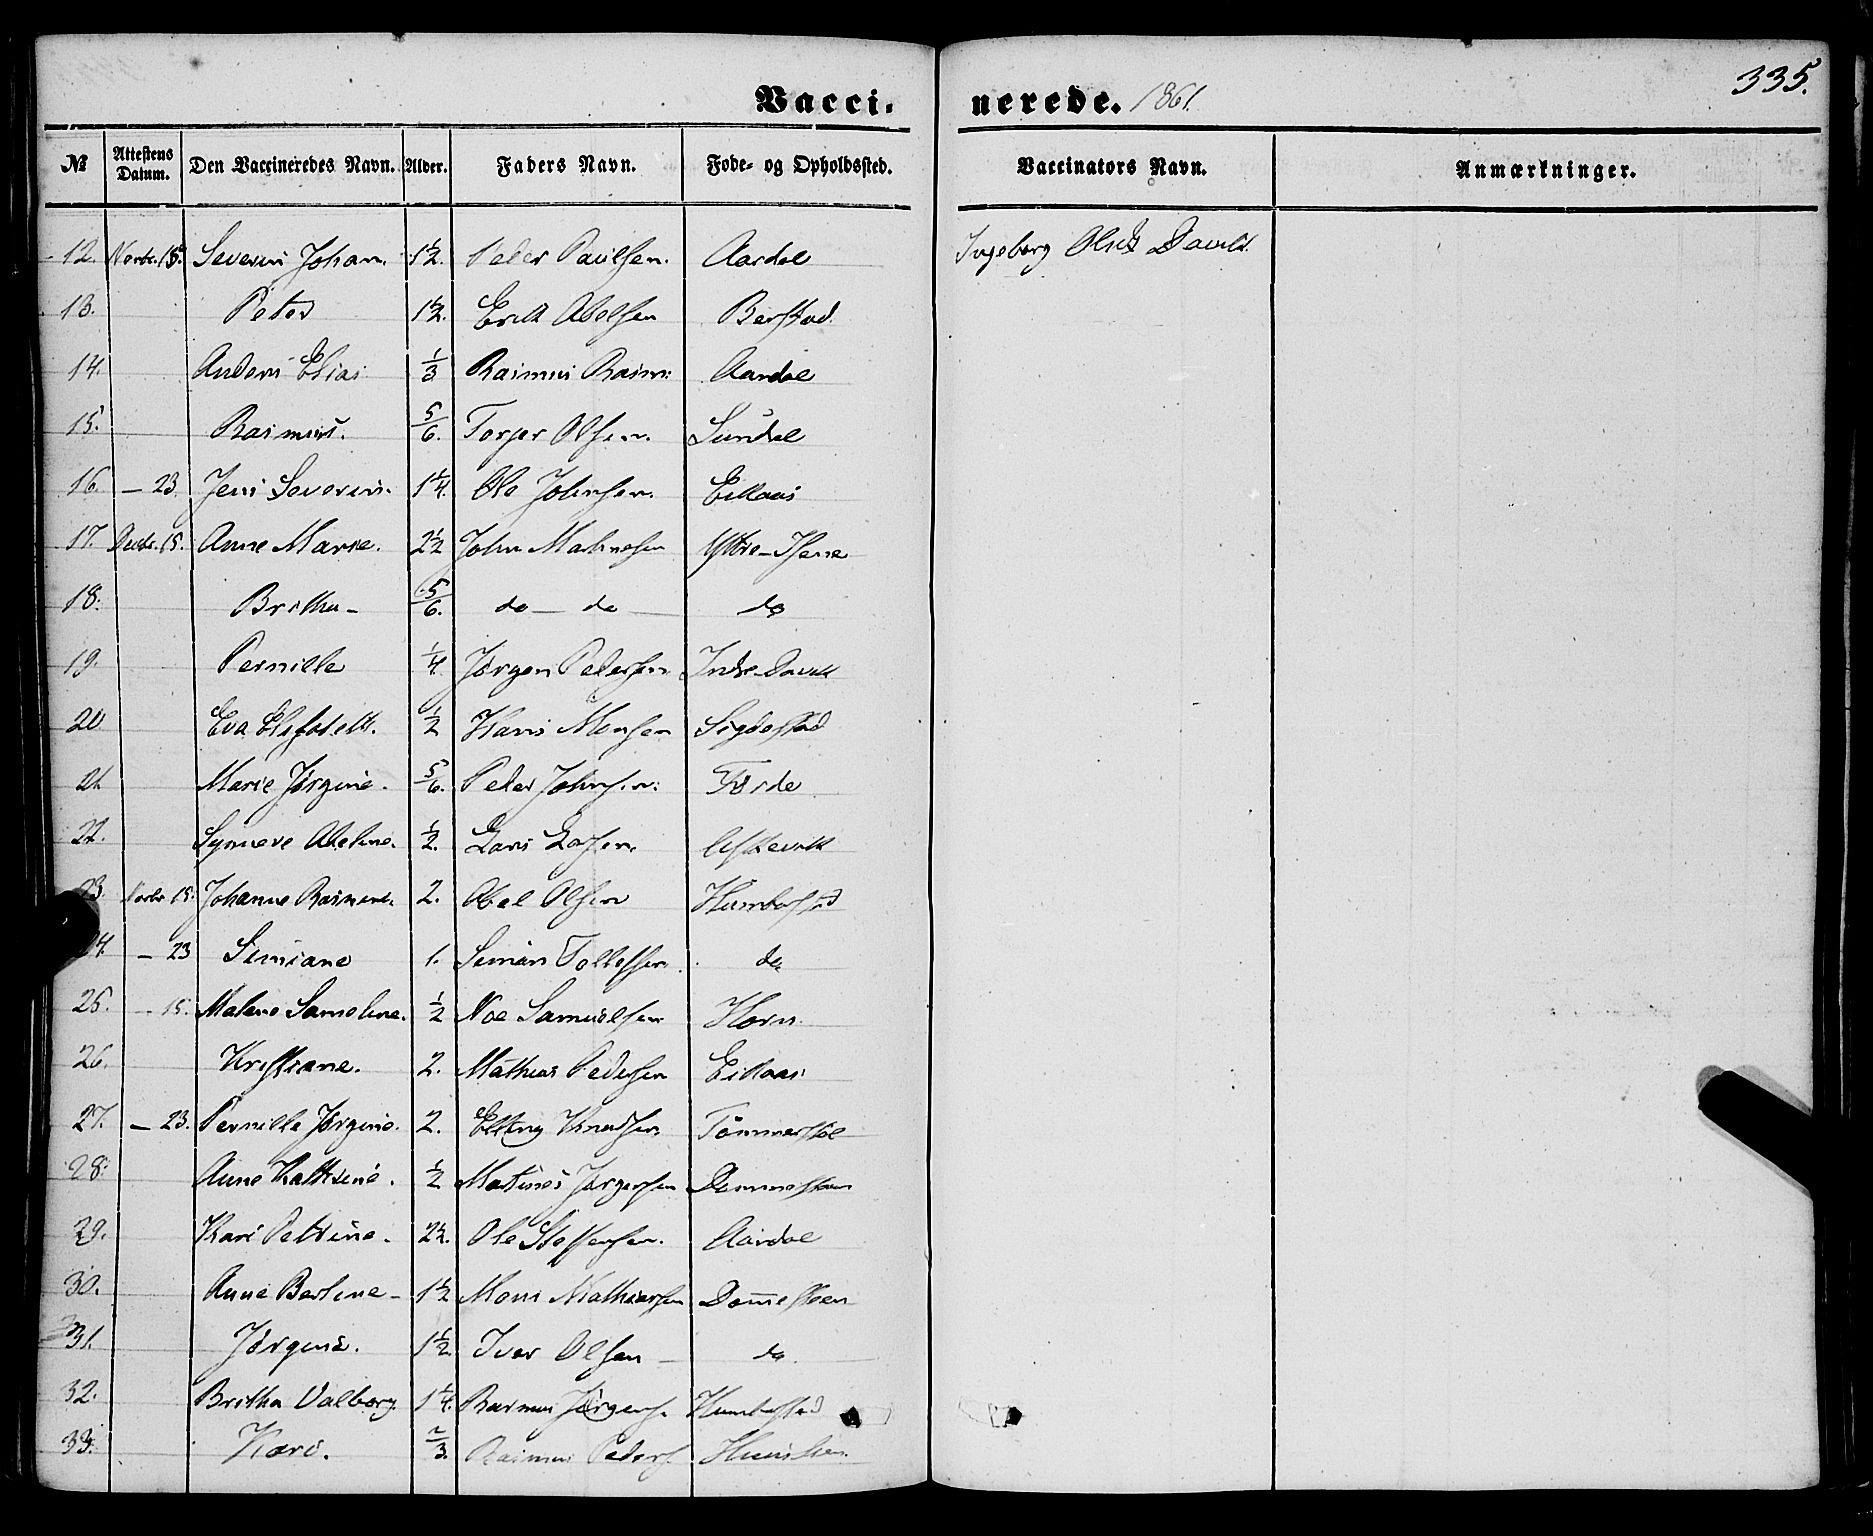 335.
Vacci- nerede. 1861.
№ Attestens Datum. Den Vaccineredes Navn. Alder. Faders Navn. Føde- og Opholdssted. Vaccinators Navn. Anmærkninger.
12. Novbr. 15. Severin Johan. 1½. Peder Paulsen. Aardal Ingeborg Olsd. Davik
13. Peter 1½. Erik Abelsen Berstad.
14. Anders Elias 1/3 Rasmus Rasm: Aardal
15. Rasmus. 5/6. Torger Olsen. Sundal
16. – 23. Jens Severin. 1¼. Ole Johnsen. Eikaas
17. Decbr. 15. Anne Marie. 2½ John Mathisen Yttre-
18. Britha – 5/6. do – do do
19. Pernille ¼. Jørgen Pedersen Indre-Davik
20. Eva Elisabeth. ½ Hans Monsen Sigdestad
21. Marie Jørgine. 5/6. Peder Johnsen. Førde
22. Synneve Abeline. ½. Lars Larsen.
23. Novbr. 15. Johanne Rasmine. 2. Abel Olsen Humborstad
24. – 23 Simiane 1. Simon Tollefsen. do
25. – 15. Malene Sameline. ½ Noe Samuelsen Horn.
26. Kristiane. 2. Mathias Pedersen Eikaas
27. – 23. Pernille Jørgine. 2. Elling Knudsen Tømmerstøl
28. Anne Kathrine. ½ Martines Jørgensen Dommesteen
29. Kari Petrine. 2¼. Ole Steffensen. Aardal
30. Anne Bertine – 1½ Mons Mathiasen Dom̅esteen
31. Jørgine. 1½. Iver Olsen – do
32. Britha Valborg 1¼. Rasmus Jørgens. Humborstad
33. Kari. 2/3. Rasmus Peders.